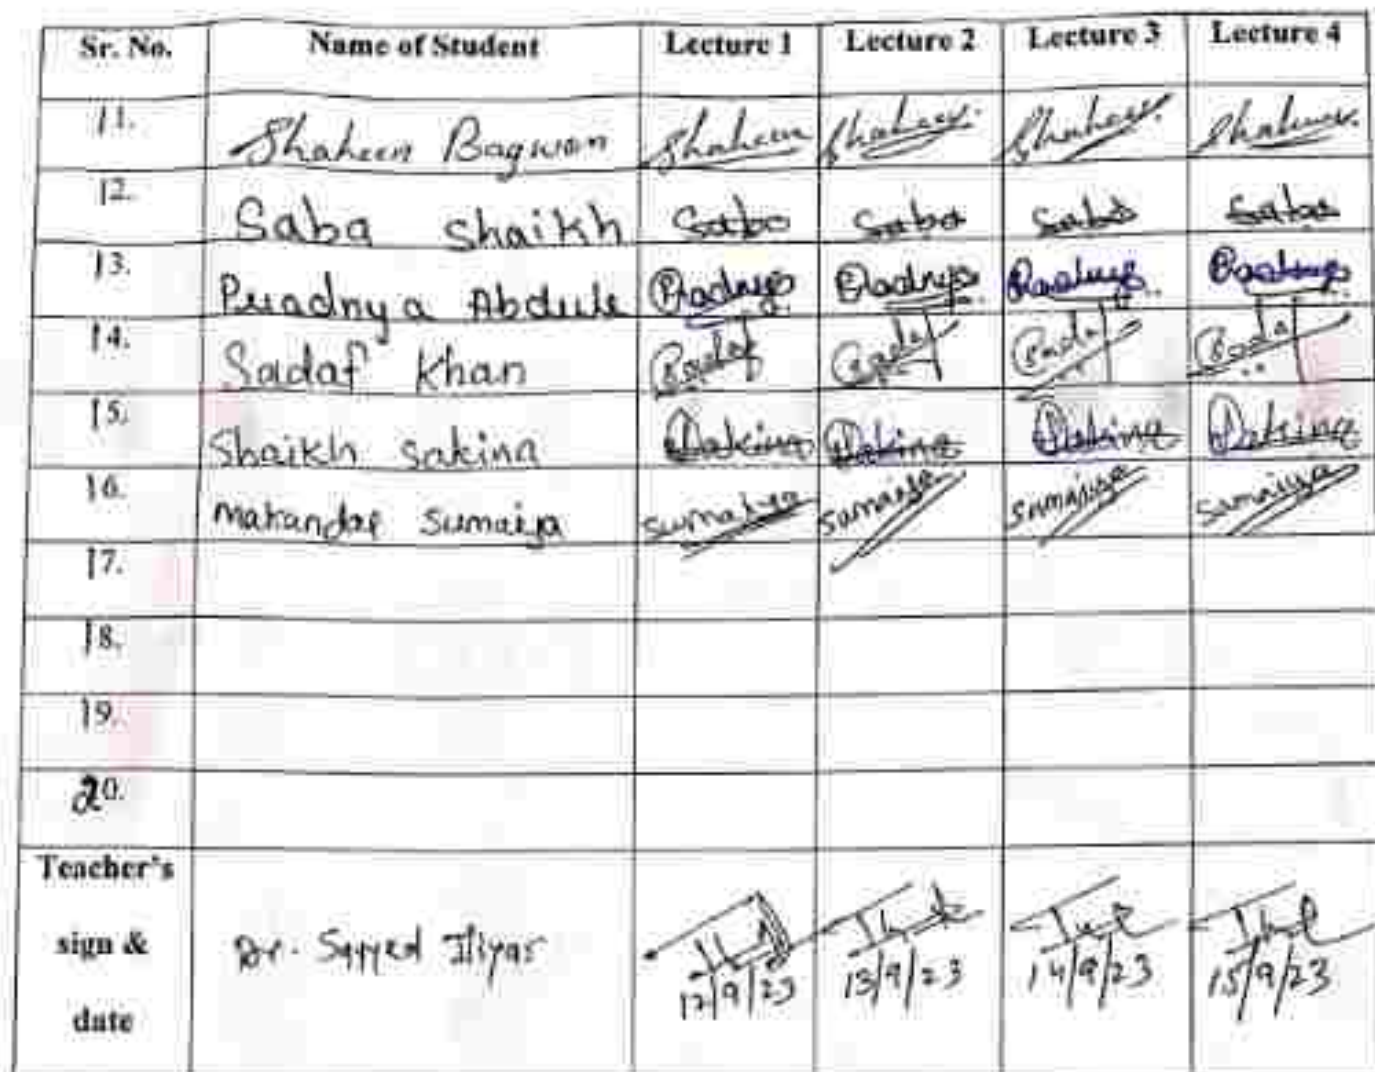 Sr. No. Name of Student Lecture 1 Lecture 2 Lecture 3 Lecture 4
11. Shaheen Bagwan Shaheen Shaheen Shaheen Shaheen
12. Saba Shaikh Saba Saba Saba Saba
13. Pradnya Abdule Pradnya Pradnya Pradnya Pradnya
14. Sadaf Khan Sadaf Sadaf Sadaf Sadaf
15. Shaikh Sakina Sakina Sakina Sakina Sakina
16. Makandar Sumaiya Sumaiya Sumaiya Sumaiya Sumaiya
17.
18.
19.
20.
Teacher's
sign & Dr. Sayyed Iliyas 12/9/23 13/9/23 14/9/23 15/9/23
date